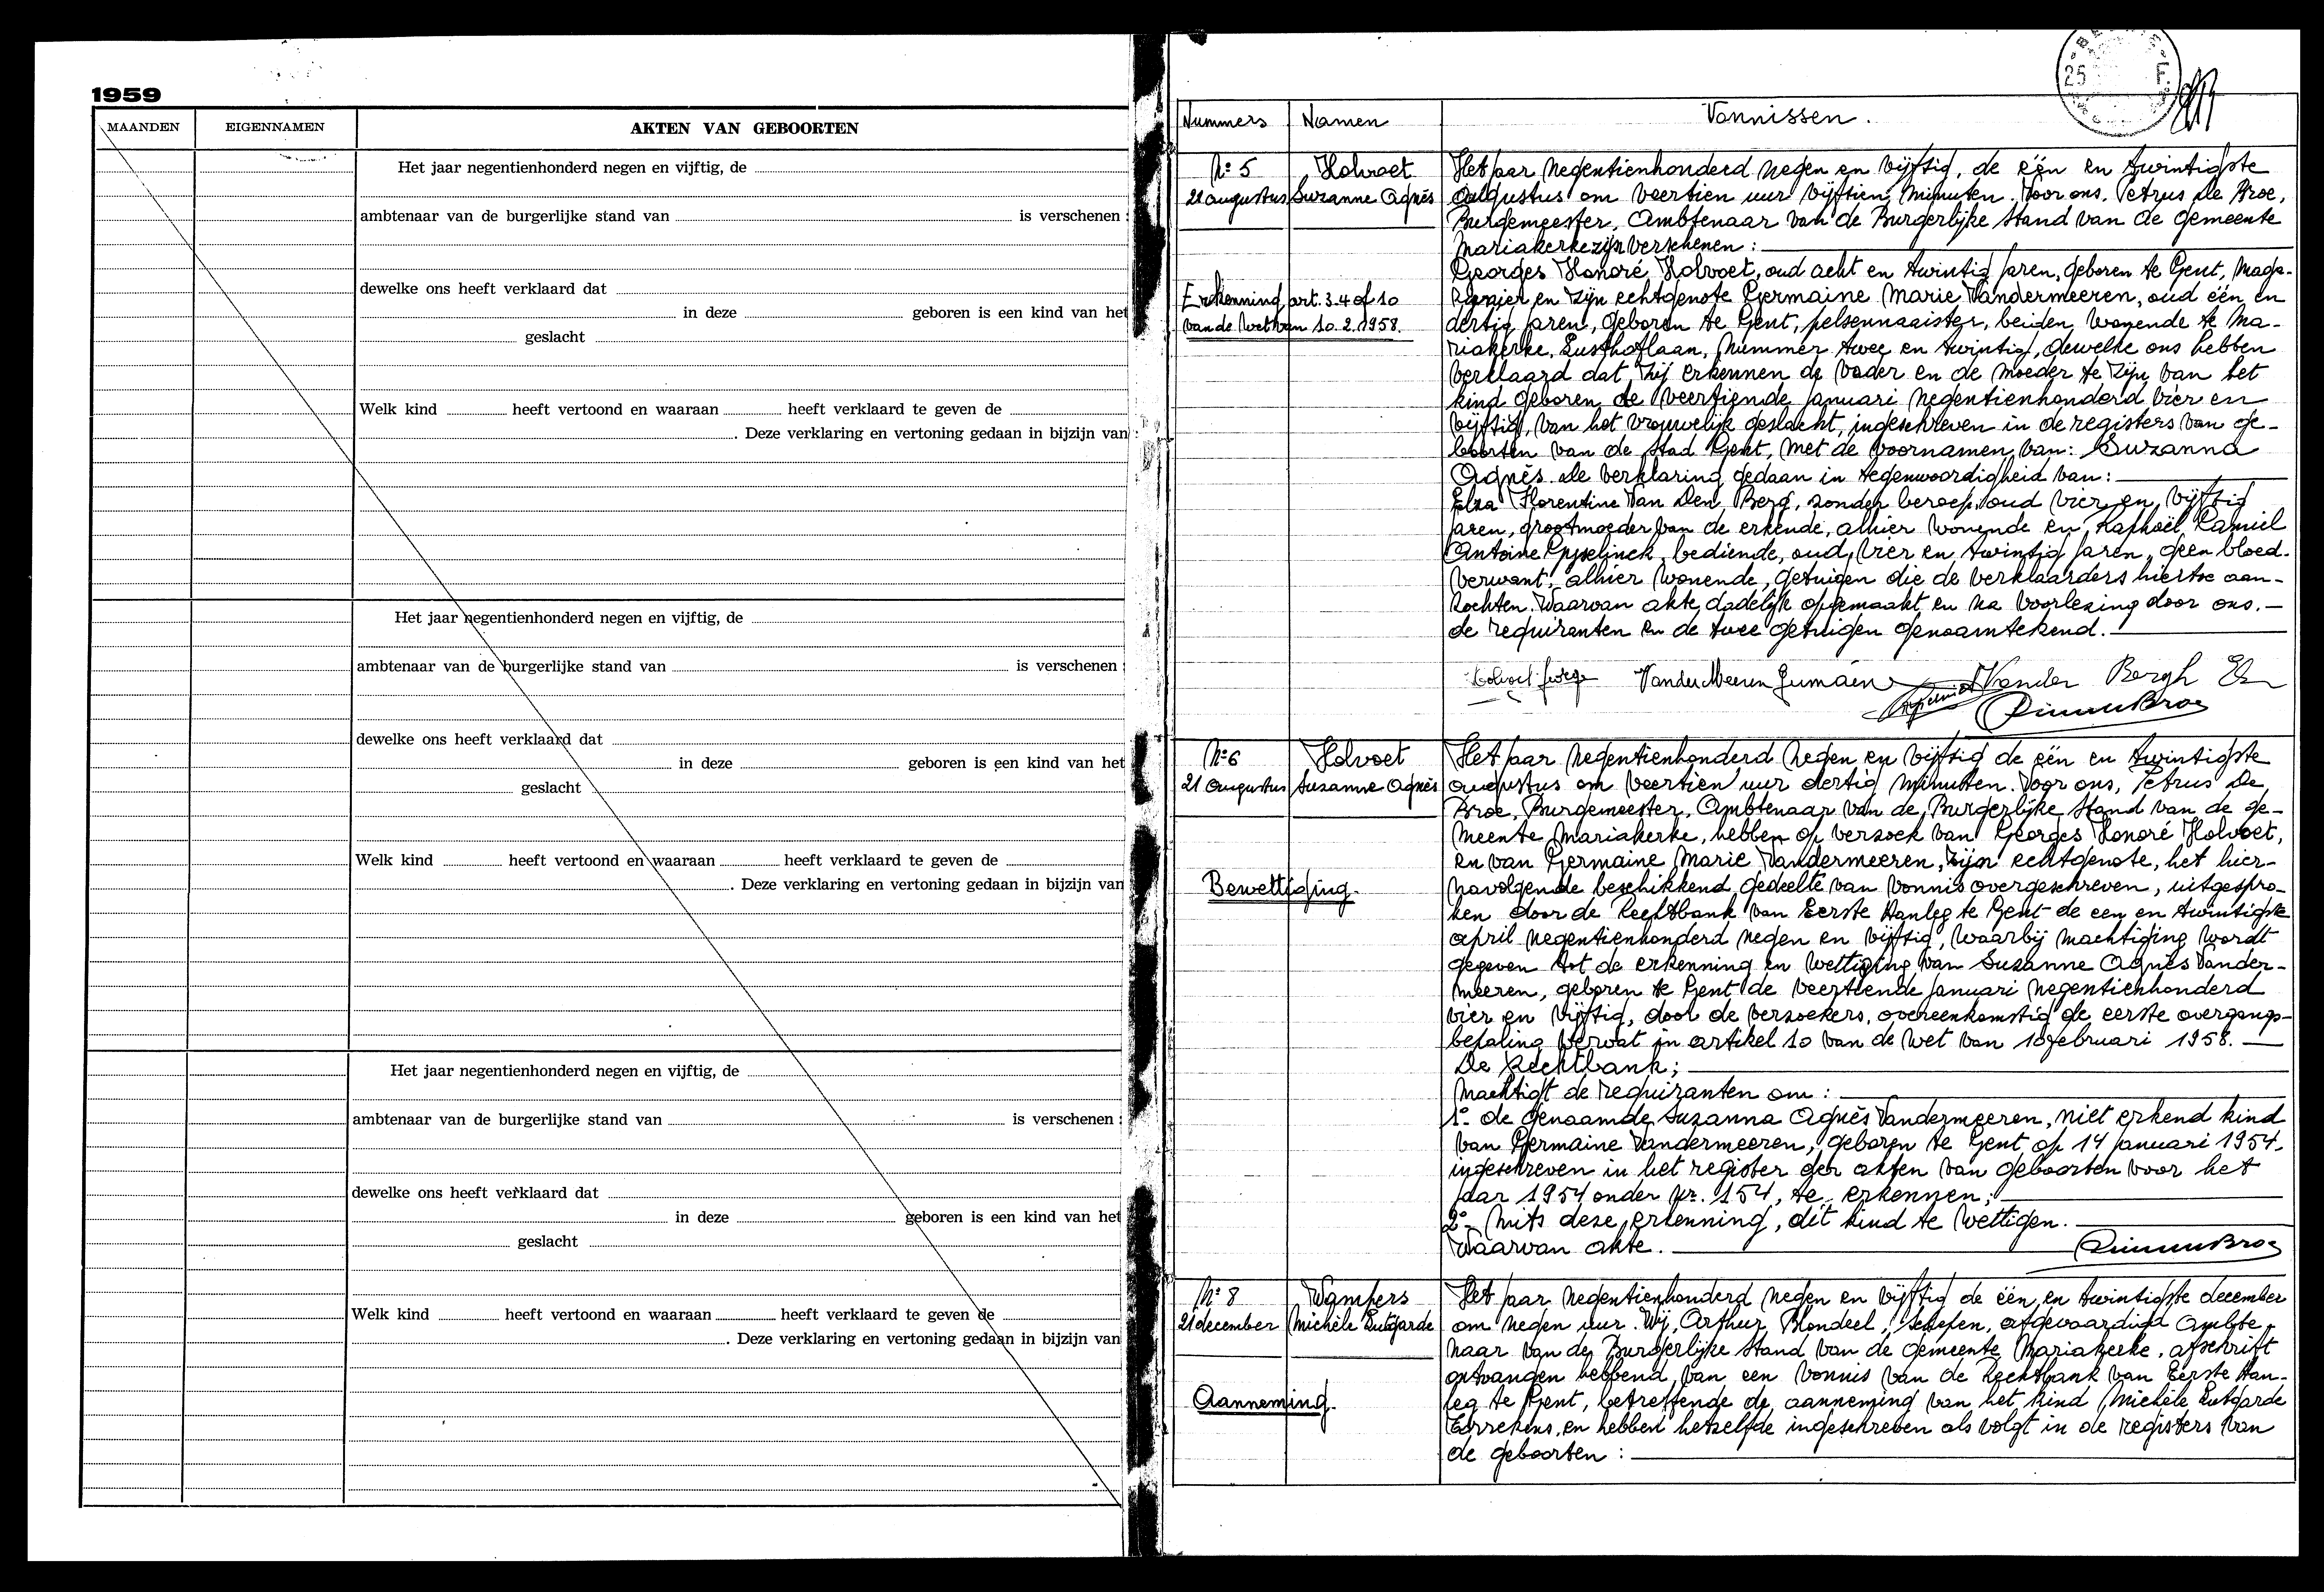 1959
MAANDEN EIGENNAMEN AKTEN VAN GEBOORTEN
Het jaar negentienhonderd negen en vijftig, de
ambtenaar van de burgerlijke stand van is verschenen :
dewelke ons heeft verklaard dat
in deze geboren is een kind van het
geslacht
Welk kind heeft vertoond en waaraan heeft verklaard te geven de
. Deze verklaring en vertoning gedaan in bijzijn van
Het jaar negentienhonderd negen en vijftig, de
ambtenaar van de burgerlijke stand van is verschenen :
dewelke ons heeft verklaard dat
in deze geboren is een kind van het
geslacht
Welk kind heeft vertoond en waaraan heeft verklaard te geven de
. Deze verklaring en vertoning gedaan in bijzijn van
Het jaar negentienhonderd negen en vijftig, de
ambtenaar van de burgerlijke stand van is verschenen :
dewelke ons heeft verklaard dat
in deze geboren is een kind van het
geslacht
Welk kind heeft vertoond en waaraan heeft verklaard te geven de
. Deze verklaring en vertoning gedaan in bijzijn van
25 F
Nummers Namen Vonnissen.
N° 5 Holvoet
21 augustus Suzanne Agnès
Erkenning art. 3-4 of 10
van de Wet van 10.2.1958.
Het jaar negentienhonderd negen en vijftig, de één en twintigste
augustus om veertien uur vijftien minuten. Voor ons, Petrus De Broe,
Burgemeester, Ambtenaar van de Burgerlijke Stand van de gemeente
Mariakerke zijn verschenen :
Georges Honoré Holvoet, oud acht en twintig jaren, geboren te Gent, maga-
zijnier en zijn echtgenote Germaine Marie Vandermeeren, oud één en
dertig jaren, geboren te Gent, pelsennaaister, beiden wonende te Ma-
riakerke, Lusthoflaan, nummer twee en twintig, dewelke ons hebben
verklaard dat zij erkennen de vader en de moeder te zijn van het
kind geboren de veertiende januari negentienhonderd vier en
vijftig, van het vrouwelijk geslacht, ingeschreven in de registers van ge-
boorten van de Stad Gent, met de voornamen van: Suzanna
Agnès. De verklaring gedaan in tegenwoordigheid van :
Elza Florentine Van Den Berg, zonder beroep, oud vier en vijftig
jaren, grootmoeder van de erkende, alhier wonende en Raphoël Kamiel
Antoine Gyselinck, bediende, oud vier en twintig jaren, geen bloed-
verwant, alhier wonende, getuigen die de verklaarders hiertoe aan-
zochten. Waarvan akte dadelijk opgemaakt en na voorlezing door ons,
de requiranten en de twee getuigen genaamtekend.
Vander Meeren Vander Bergh
N° 6 Holvoet
21 augustus Suzanne Agnès
Bewettiging.
Het jaar negentienhonderd negen en vijftig de één en twintigste
augustus om veertien uur dertig minuten. Voor ons, Petrus De
Broe, Burgemeester, Ambtenaar van de Burgerlijke Stand van de ge-
meente Mariakerke, hebben op verzoek van Georges Honoré Holvoet,
en van Germaine Marie Vandermeeren, zijn echtgenote, het hier-
navolgende beschikkend gedeelte van vonnis overgeschreven, uitgespro-
ken door de Rechtbank van Eerste Aanleg te Gent de een en twintigste
april negentienhonderd negen en vijftig, waarbij machtiging wordt
gegeven tot de erkenning en wettiging van Suzanne Agnès Vander-
meeren, geboren te Gent de veertiende januari negentienhonderd
vier en vijftig, door de verzoekers, overeenkomstig de eerste overgangs-
bepaling vervat in artikel 10 van de wet van 10 februari 1958.
De Rechtbank ;
Machtigt de requiranten om :
1°- de genaamde Suzanna Agnès Vandermeeren, niet erkend kind
van Germaine Vandermeeren, geboren te Gent op 14 januari 1954,
ingeschreven in het register der akten van geboorten voor het
jaar 1954 onder nr. 154, te erkennen ;
2°- mits deze erkenning, dit kind te wettigen.
Waarvan akte.
N° 8 Wampers
21 december Michèle Lutgarde
Aanneming.
Het jaar negentienhonderd negen en vijftig de één en twintigste december
om negen uur. Wij, Arthur Blondeel, schepen, afgevaardigd Ambte-
naar van de Burgerlijke Stand van de gemeente Mariakerke, afschrift
ontvangen hebbend van een vonnis van de Rechtbank van Eerste Aan-
leg te Gent, betreffende de aanneming van het kind Michèle Lutgarde
en hebben hetzelfde ingeschreven als volgt in de registers van
de geboorten :